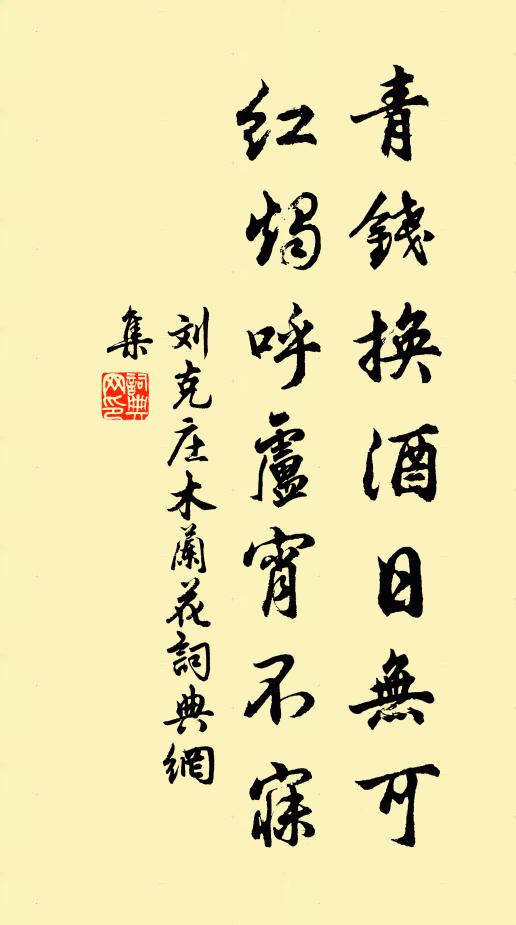 青錢換酒日無可
紅燭呼盧宵不寐
刘克庄木蘭花詞典網
集
詞典
网印